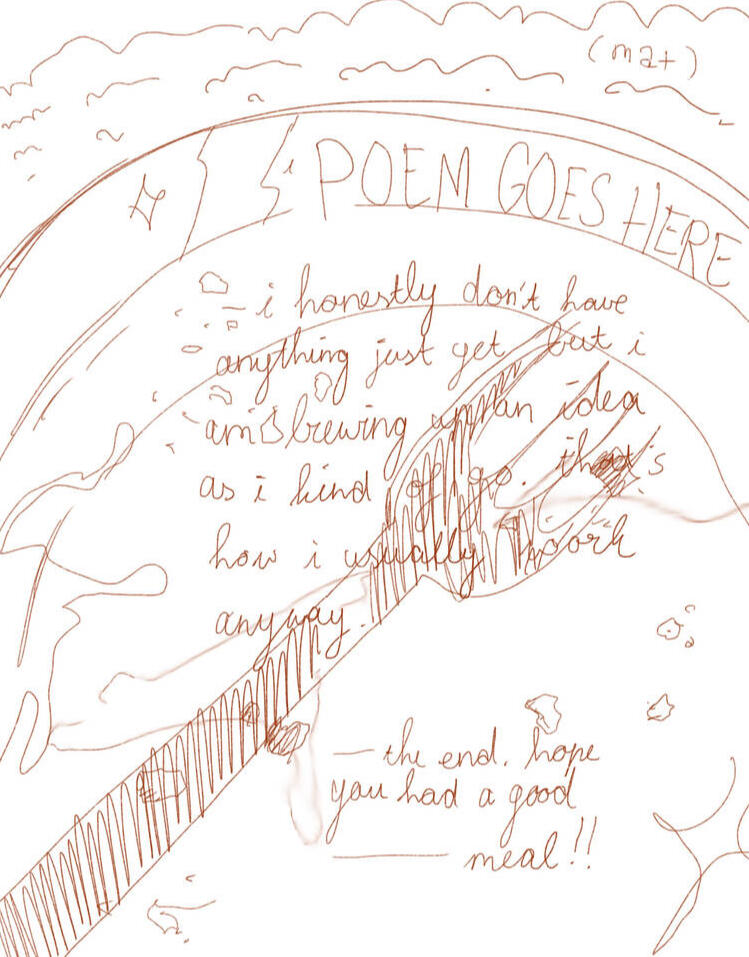 (mat)
POEM GOES HERE
– i honestly don't have
anything just yet, but i
am brewing up an idea
as i kind of go. that's
how i usually work
anyway.
— the end. hope
you had a good
meal!!